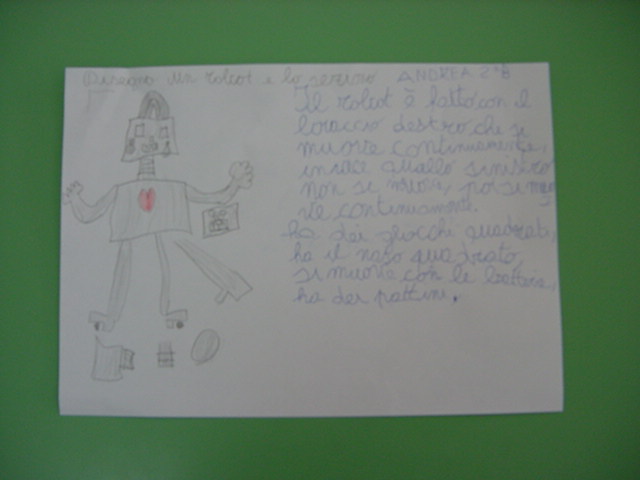 Disegno un robot e lo descrivo ANDREA 2ªB
Il robot è fatto con il
braccio destro che si
muove continuamente,
invece quello sinistro
non si muove, poi si muo
ve continuamente.
ha dei giocchi quadrati,
ha il naso quadrato,
si muove con le batterie,
ha dei pattini.